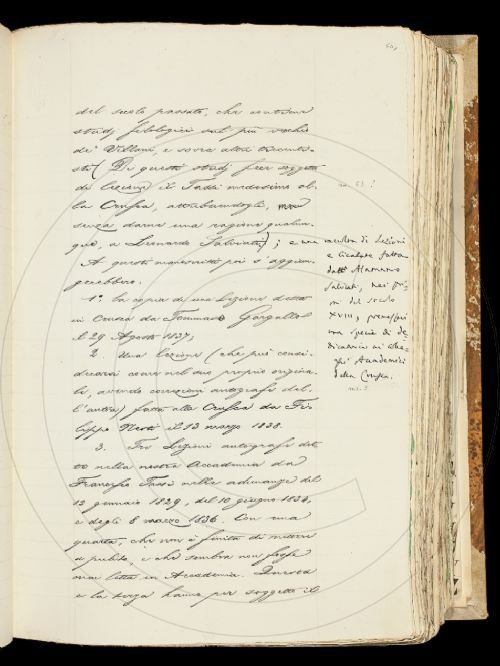 del secolo passato, che contiene
studj filologici sul più vecchio
de' Villani, e sovra altri trecenti-
sti (Di questi studj fece soggetto
di lezione il Tassi medesimo al-
la Crusca, attribuendogli, ma
senza darne una ragione qualun-
que, a Leonardo Salviati); e una raccolta di Lezioni
e Cicalate fatta
dall' Alamanno
Salviati, nei pri-
mi del secolo
XVIII, premessavi
una specie di de-
dicatoria ai colle-
ghi Accademici
della Crusca.
A questi manoscritti poi s'aggiun-
gerebbero:
1.° la copia di una Lezione detta
in Crusca da Tommaso Gargallo
il 29 Agosto 1837;
2. Una lezione (che può consi-
derarsi come nel suo proprio origina-
le, avendo correzioni autografe del-
l'autore) fatta alla Crusca da Fi-
lippo Nesti il 13 marzo 1838.
3. Tre Lezioni autografe det-
te nella nostra Accademia da
Francesco Tassi nelle adunanze del
13 gennaio 1829, del 10 giugno 1834,
e degli 8 marzo 1836. Con una
quarta, che non è finita di mettere
a pulito, e che sembra non fosse
mai letta in Accademia. Questa
e la terza hanno per soggetto il